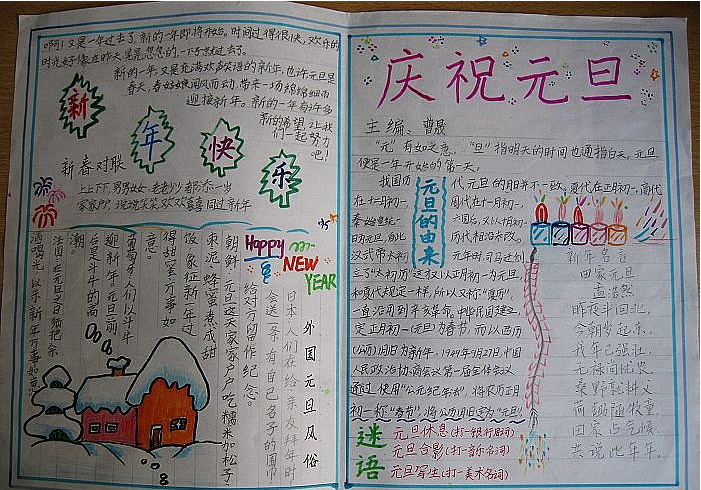 啊！又是一年过去了，新的一年即将开始。时间过得很快，欢乐的
时光好像在昨天，
新的一年，又是充满欢声笑语的新年，也许元旦是
春天，春姑娘闻风而动，带来一场绵绵细雨
迎接新年。新的一年有许多
新的希望，让我
们一起努力
吧！
新
年
快
乐
新春对联
上上下下，男男女女，老老少少都添一岁
家家户户，说说笑笑，欢欢喜喜同过新年
Happy
NEW
YEAR
外国元旦风俗
日本：人们在给亲友拜年时
会送一条有自己名字的围巾
给对方留作纪念。
朝鲜：元旦这天家家户户吃糯米加松子
枣泥蜂蜜煮成甜
饭，象征新年过
得甜蜜，万事如
意。
葡萄牙人们以斗牛
迎新年，元旦前
台是斗牛的高
潮
法国：在元旦之日须把家
酒喝光，以示新年万事如意
庆祝元旦
主编：曹晟
“元”有始之意，“旦”指明天的时间也通指白天。元旦
便是一年开始的第一天。
元旦的由来
我国历
代元旦的月日并不一致。夏代在正月初一，商代
在十二月初一，
周代在十一月初一，
秦始皇统一
六国后，又以十月初一
为元旦，自此
历代相沿未改。
汉武帝太初
元年时，司马迁创
立了“太初历”，这才又以正月初一为元旦，
和夏代规定一样，所以又称“夏历”，
一直沿用到辛亥革命。中华民国建立，
定正月初一（元旦）为春节，而以西历
（公历）1月1日为新年。1949年9月27日，中国
人民政治协商会议第一届全体会议
通过使用“公元纪年法”，将农历正月
初一称“春节”，将公历1月1日定为“元旦”。
新年名言
田家元日
孟浩然
昨夜斗回北，
今朝岁起东。
我年已强壮，
无禄尚忧农。
桑野就耕父，
荷锄随牧童。
田家占气候，
共说此年丰。
谜语
元旦休息（打一银行用词）
元旦合影（打一音乐名词）
元旦写生（打一美术名词）